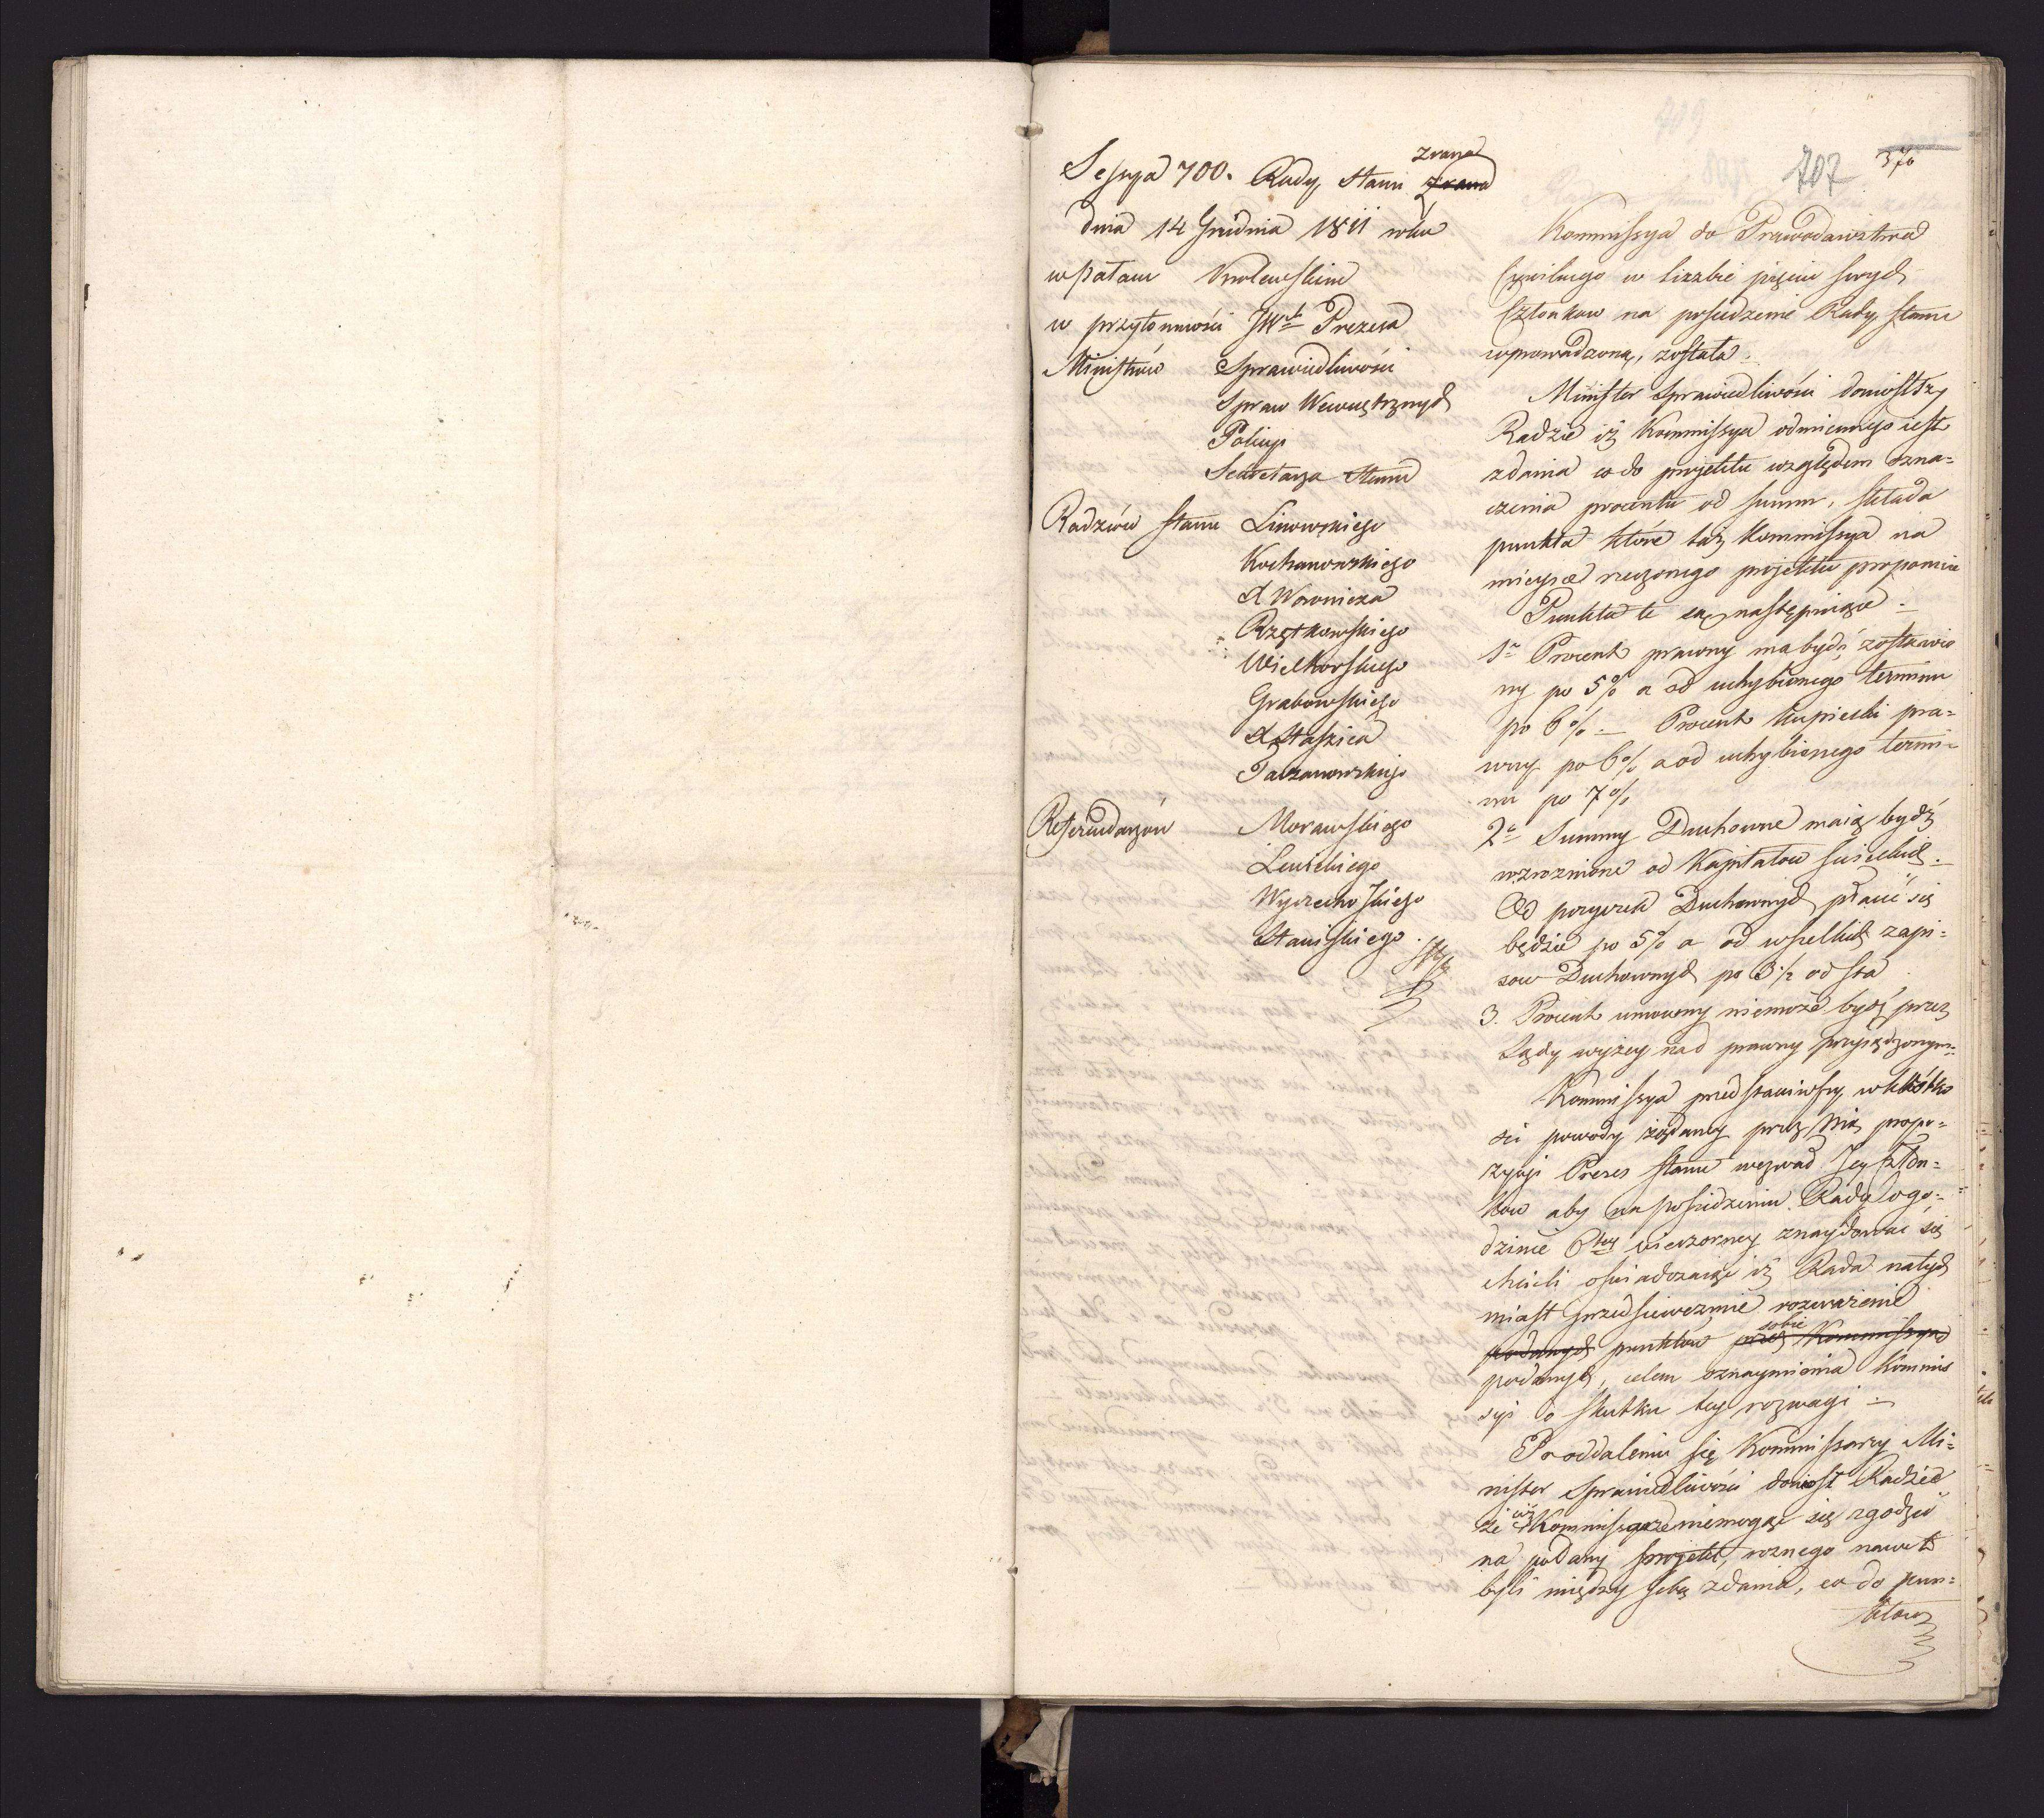 709
707 376
Sessya 700. Rady Stanu zrana
dnia 14 Grudnia 1811 roku
w Pałacu Krolewskim
w przytomności JWo Prezesa
Ministrów Sprawiedliwości
Spraw Wewnętrznych
Policyi
Sekretarza Stanu
Radzców Stanu Linowskiego
Kochanowskiego
X Woronicza
Rzętkowskiego
Wielhorskiego
Grabowskiego
X Staszica
Tarzanowskiego
Referendarzów Morawskiego
Lewickiego
Wyczechoskiego
Staniskiego.
Kommissya do Prawodawstwa
Cywilnego w liczbie pięciu swych
Członkow na posiedzenie Rady Stanu
wprowadzoną, została.
Minister Sprawiedliwości doniosłszy
Radzie iż Kommissya odmiennego iest
zdania co do projektu względem ozna=
czenia procentu od summ, składa
punkta które taż Kommissya na
mieysce rzeczonego projektu proponuie
Punkta te są następuiące.
1o Procent prawny ma bydź zostawio
ny po 5% a od uchybionego terminu
po 6% — Procent kupiecki pra=
wny po 6% a od uchybionego termi=
nu po 7%
2o Summy Duchowne maią bydź
wzroznione od Kapitałow swieckich.
Od pożyczek Duchownych płacić się
będzie po 5% a od wszelkich zapi=
sow Duchownych po 3 1/2 od sta
3. Procent umowny niemoże bydź przez
Sądy wyżey nad prawny przysądzonym
Kommissya przedstawiwszy w krótko
ści powody żądaney przez Nią propo=
zycyi Prezes Stanu wezwał Jey Człon=
kow aby na posiedzeniu Rady o go=
dzinie 6tey wieczorney znaydować się
chcieli oświadczaiąc iż Rada natych
miast przedsiewezmie rozważenie
podanych punktow sobie przez Kommissyą
podanych, celem oznaymienia Kommis
syi o skutku tey rozwagi —
Po oddaleniu się Kommissarzy Mi=
nister Sprawiedliwości doniosł Radzie
że ciż Kommissarze niemogąc się zgodzić
na podany projekt, roznego nawet
byli między sobą zdania, co do pun=
ktow